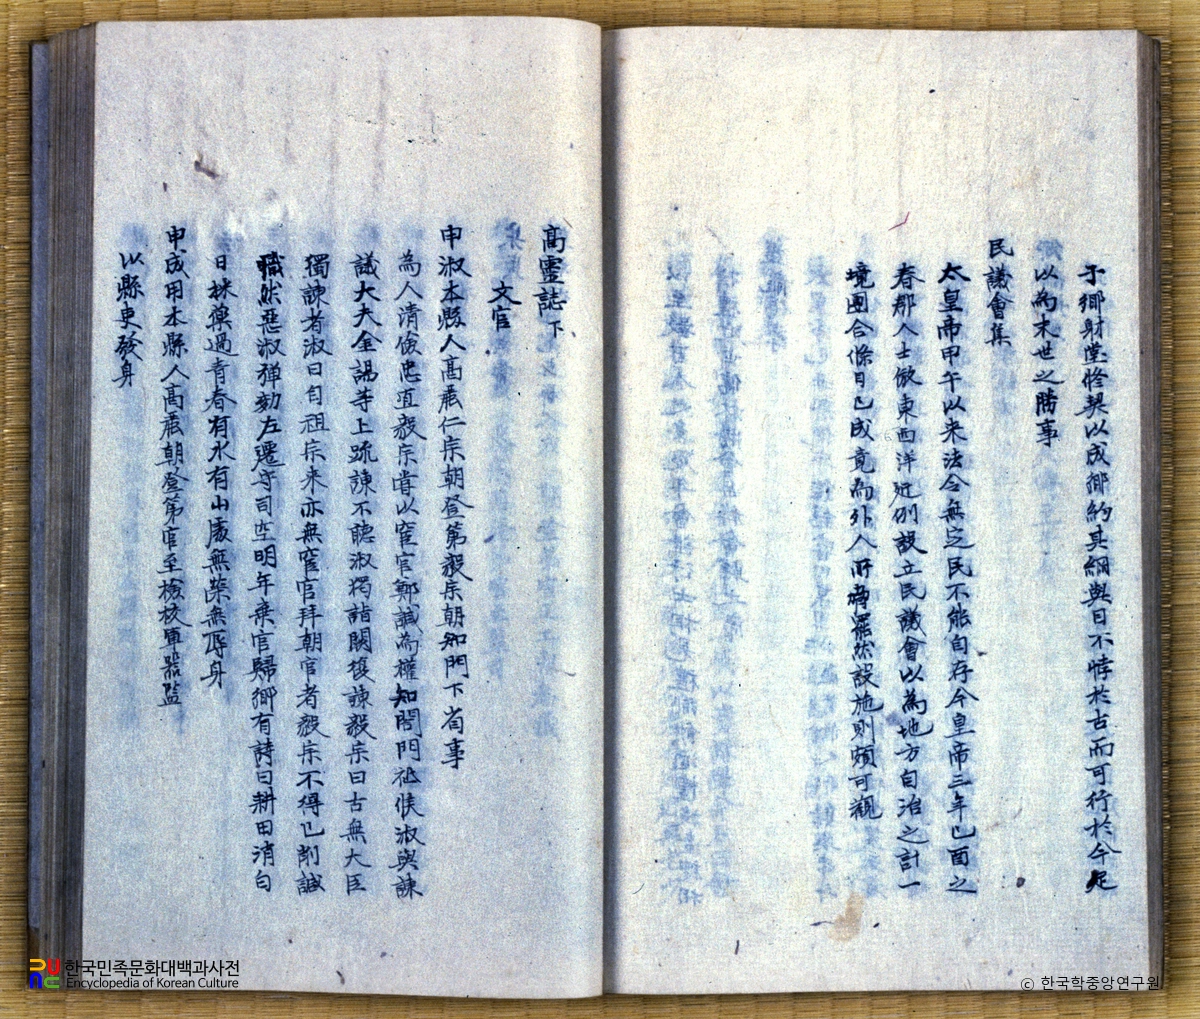 于鄕射堂修契以成鄕約其綱與目不悖於古而可行於今足
以爲末世之勝事
民議會集
太皇帝甲午以来法令無定民不能自存今皇帝三年己酉之
春郡人士倣東西洋近例設立民議會以為地方自治之計一
境團合條目已成竟為外人所 罷然設施則頗可觀
高靈誌下
文官
申淑本縣人高麗仁宗朝登第毅宗朝知門下省事
為人清儉忠直毅宗嘗以宦官鄭諴為權知閤門祗候淑與諫
議大夫金諹等上疏諫不聽淑獨詣闕復諫毅宗曰古無大臣
獨諫者淑曰自祖宗来亦無宦官拜朝官者毅宗不得已削諴
職然惡淑彈劾左遷守司空明年棄官歸鄕有詩曰耕田消白
日採藥過青春有水有山處無榮無辱身
申成用本縣人高麗朝登第官至檢校軍器監
以縣吏發身
한국민족문화대백과사전
Encyclopedia of Korean Culture
© 한국학중앙연구원